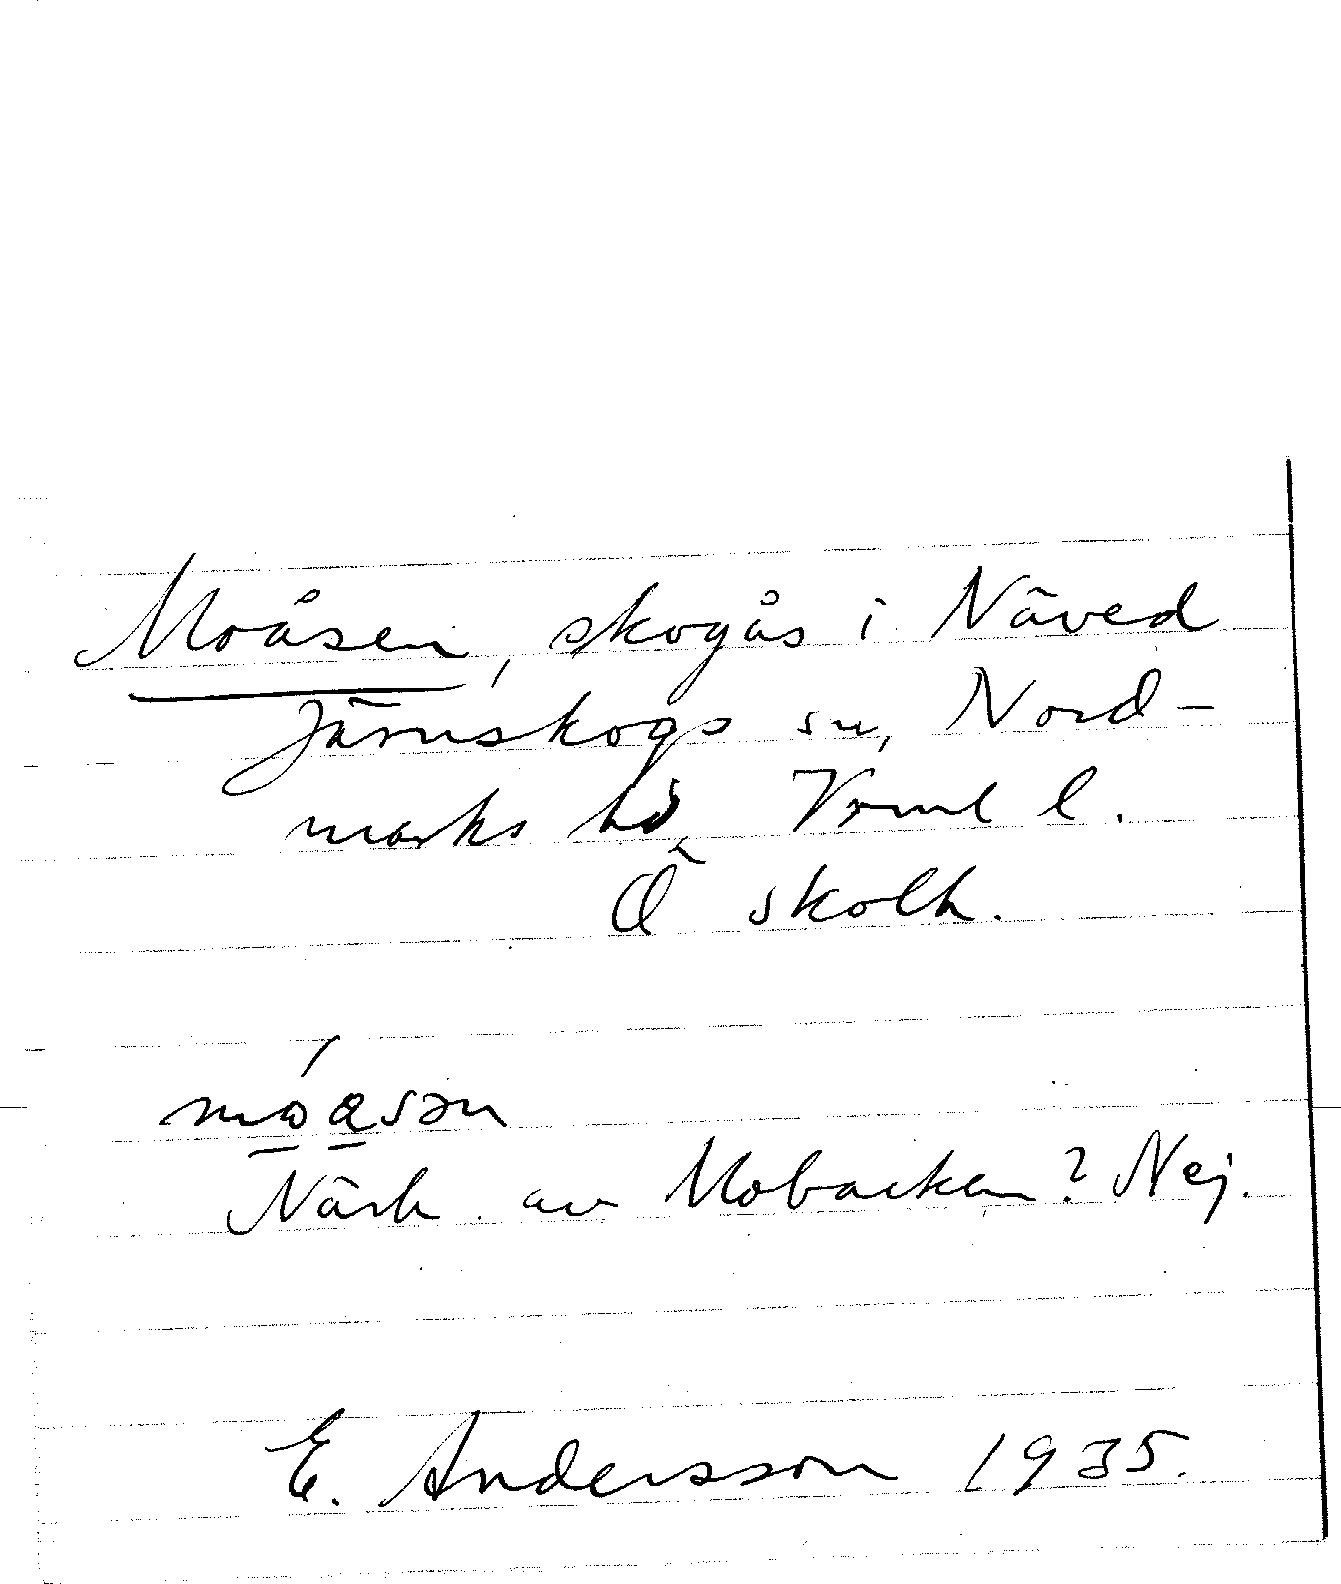 Moåsen, skogås i Näved
Järnskogs sn, Nord-
marks hd, Vrml l.
Ö skolh.
Närh. av Mobacken? Nej.
E. Andersson 1935.